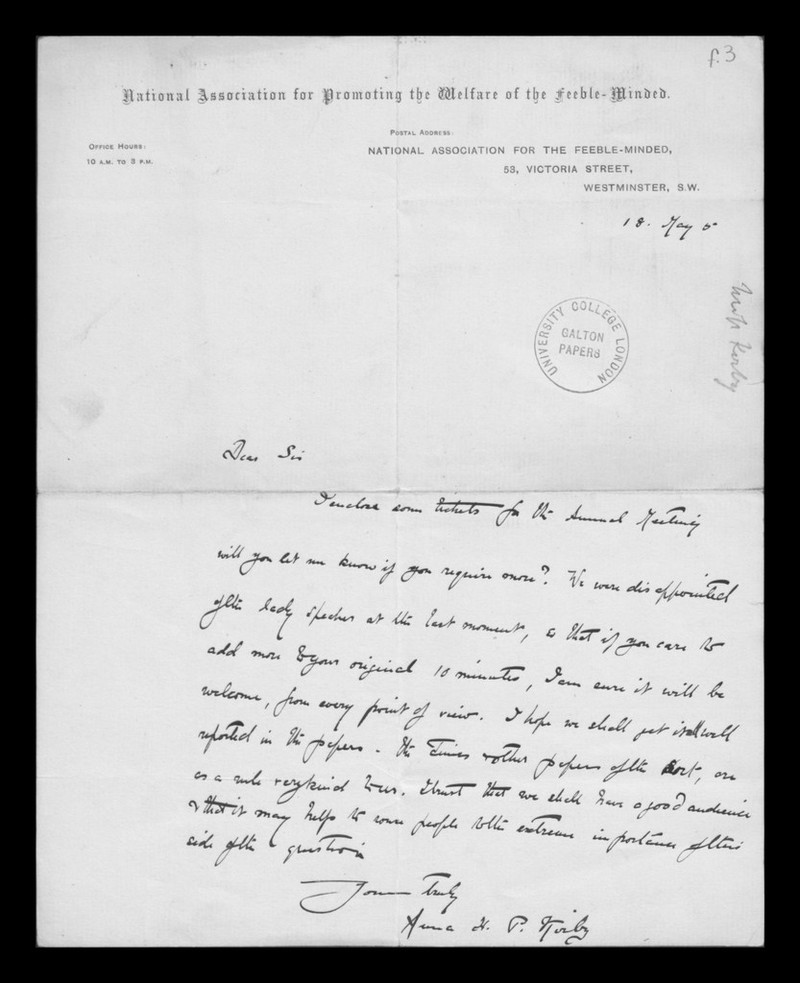 f.3
National Association for Promoting the Welfare of the Feeble-Minded.
Postal Address:
Office Hours:
10 A.M. TO 3 P.M.
NATIONAL ASSOCIATION FOR THE FEEBLE-MINDED,
53, VICTORIA STREET,
WESTMINSTER, S.W.
18. May 5
UNIVERSITY COLLEGE LONDON
GALTON
PAPERS
Miss Kirby
Dear Sir
I enclose some tickets for the Annual Meeting
will you let me know if you require more? We were disappointed
of the lady speaker at the last moment, so that if you care to
add more to your original 10 minutes, I am sure it will be
welcome, from every point of view. I hope we shall get it all well
reported in the papers. The Times & other papers of the sort, are
as a rule very kind to us. I trust that we shall have a good audience
& that it may help to rouse people to the extreme importance of this
side of the question
Yours truly
Anna H. P. Kirby